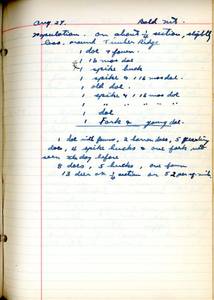 Aug 29. Bald Mt.
Population. - on about ½ section, slightly
less, around Timber Ridge
1 doe & fawn.
1 16 mos doe
1 spike buck
1 spike & 1 16 mos doe.
1 old doe.
1 spike & 1 16 mos doe
1 " " " " "
1 doe
1 Fork & young doe.
1 doe with fawns, 2 barren does, 5 yearling
does, 4 spike bucks & one fork were
seen the day before
8 does, 5 bucks, one fawn
13 deer on ½ section or 52 per sq. mile